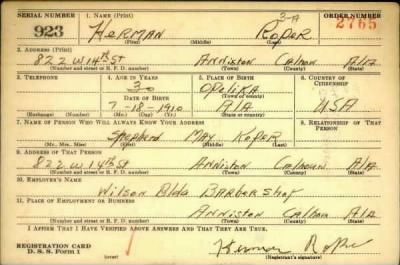 SERIAL NUMBER 1. NAME (Print) ORDER NUMBER
923 HERMAN 3-A ROPER 2765
(First) (Middle) (Last)
2. ADDRESS (Print)
822 W 14th St Anniston Calhoun Ala
(Number and street or R. F. D. number) (Town) (County) (State)
3. TELEPHONE 4. AGE IN YEARS 5. PLACE OF BIRTH 6. COUNTRY OF CITIZENSHIP
30 OPelikA
DATE OF BIRTH (Town or county)
7-18-1910 AlA USA
(Exchange) (Number) (Mo.) (Day) (Yr.) (State or country)
7. NAME OF PERSON WHO WILL ALWAYS KNOW YOUR ADDRESS 8. RELATIONSHIP OF THAT PERSON
MAY RoPER
(Mr., Mrs., Miss) (First) (Middle) (Last)
9. ADDRESS OF THAT PERSON
822 W 14th St Anniston Calhoun Ala
(Number and street or R. F. D. number) (Town) (County) (State)
10. EMPLOYER'S NAME
Wilson Bldg BARBER Shop
11. PLACE OF EMPLOYMENT OR BUSINESS
Anniston Calhou Ala
(Number and street or R. F. D. number) (Town) (County) (State)
I AFFIRM THAT I HAVE VERIFIED ABOVE ANSWERS AND THAT THEY ARE TRUE.
REGISTRATION CARD
D. S. S. Form 1 Herman Roper
(Registrant's signature)